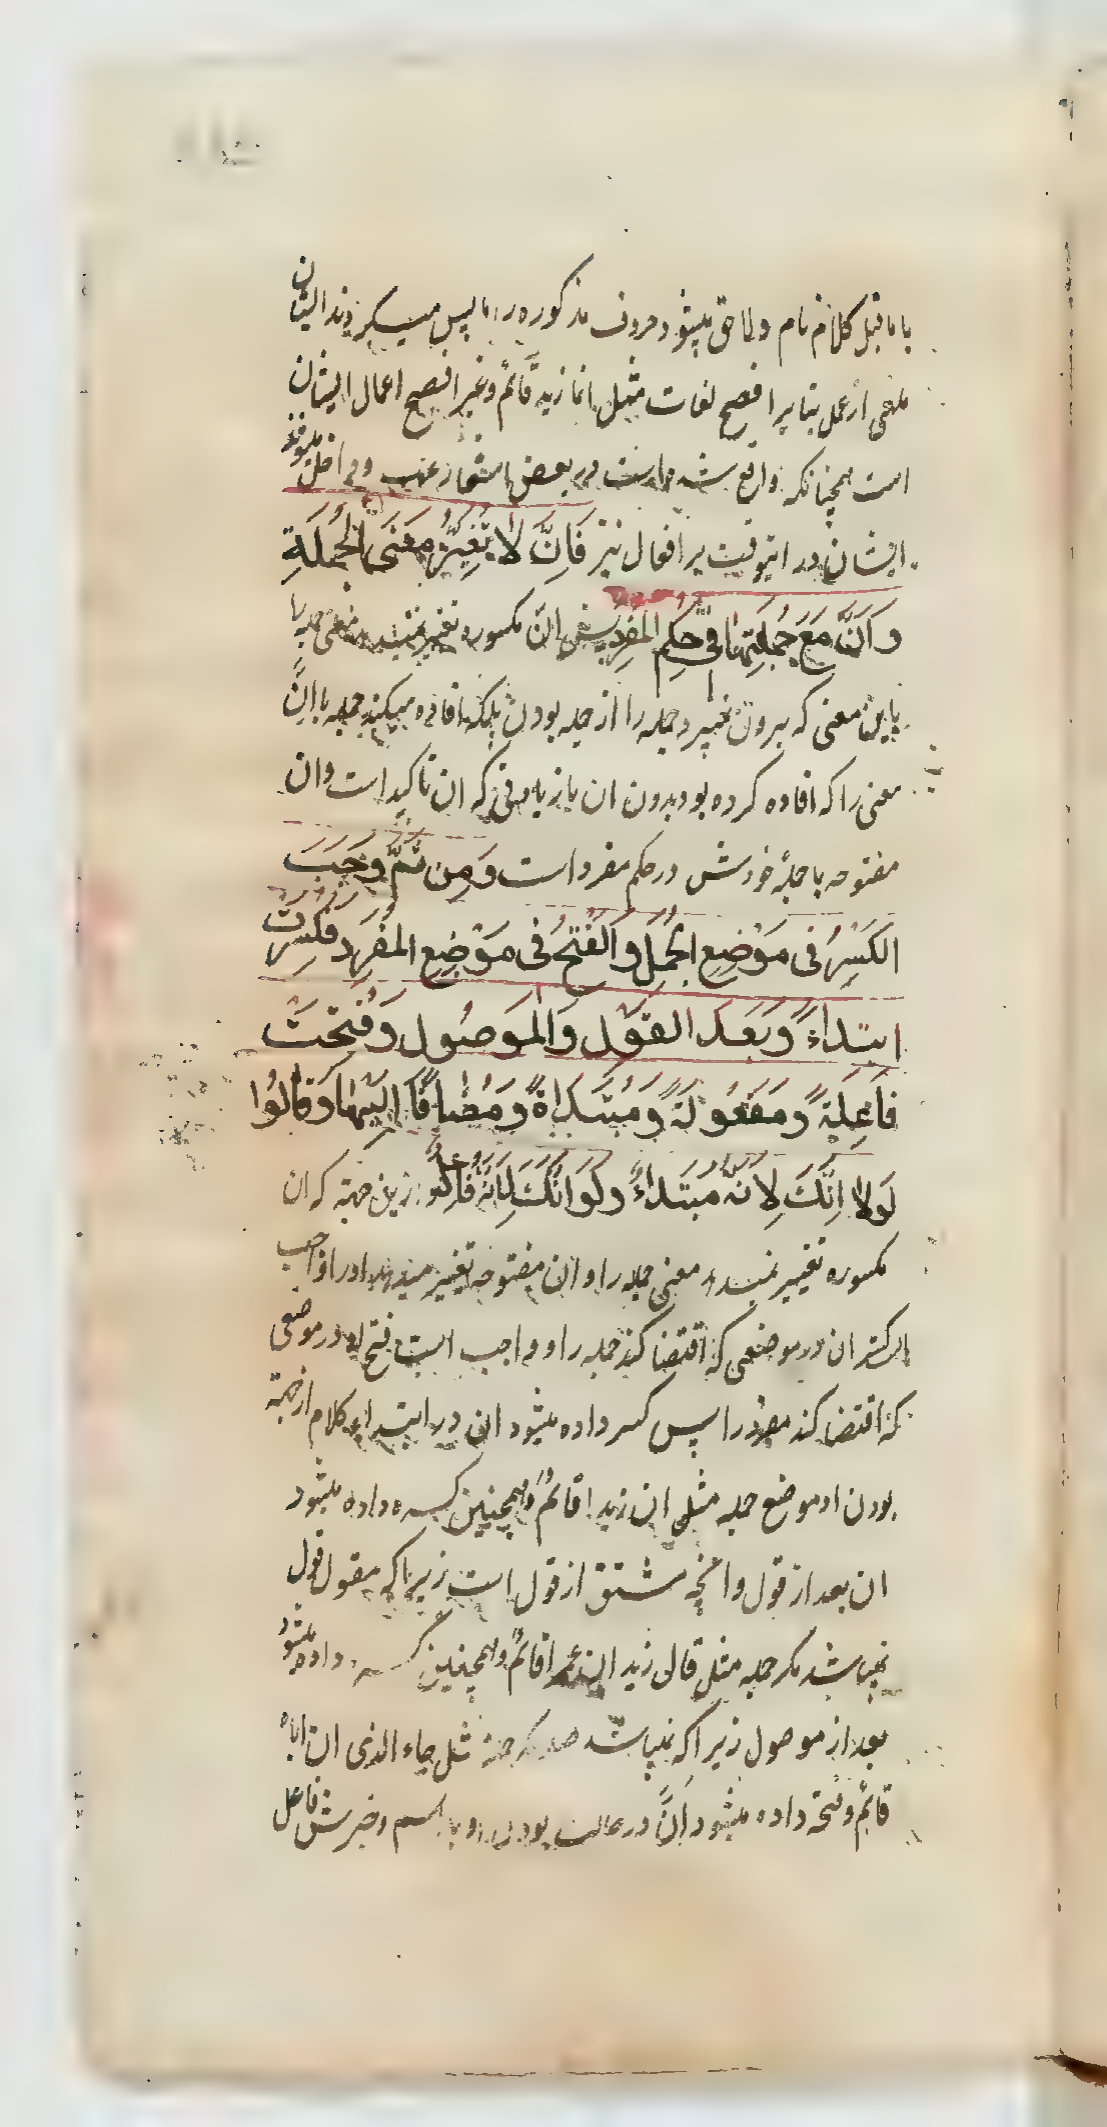 با ما قبل کلام تام و لاحق میشود حروف مذکوره را ما پس میکردند ایشان
ملغی از عمل بنا بر افصح لغات مثل انما زید قائم و غیر افصح اعمال ایشان
است همچنانکه واقع شده است در بعض اشعار عرب و داخل میشوند
ایشان در اینوقت بر افعال نیز فَاِنَّ لَا تُغَیِّرُ مَعْنَی الْجُمْلَةِ
وَ اَنَّ مَعَ جُمْلَتِهَا فِی حُکْمِ الْمُفْرَدِ یعنی اِنَّ مکسوره تغییر نمیدهد معنی جمله را
باین معنی که بیرون نمیبرد جمله را از جمله بودن بلکه افاده میکند جمله با اِنَّ
معنی را که افاده کرده بود بدون ان با زیادتی که ان تاکید است و ان
مفتوحه با جملهٔ خودش در حکم مفرد است وَ مِن ثَمَّ وَجَبَ
الکَسْرُ فی مَوْضِعِ الجُمَلِ وَ الْفَتْحُ فی مَوْضِعِ المُفْرَدِ فَکُسِرَتْ
اِبتداءً وَ بَعْدَ القَوْلِ وَ المَوصُولِ وَ فُتِحَتْ
فاعِلَةً وَ مَفعُولَةً وَ مُبْتَدَاةً وَ مُضافًا اِلَیْهَا وَ قالُوا
لَولا اَنَّکَ لِاَنَّهُ مُبتَداءٌ وَ لَو اَنَّکَ لِاَنَّهُ فاعلٌ و ازین جهة که ان
مکسوره تغییر نمیدهد معنی جمله را و ان مفتوحه تغییر میدهد او را واجب
است کسر ان در موضعی که اقتضا کند جمله را و واجب است فتح او در موضعی
که اقتضا کند مفرد را پس کسر داده میشود ان در ابتداء کلام از جهة
بودن او موضع جمله مثل ان زیدا قائم و همچنین کسره داده میشود
ان بعد از قول و انچه مشتق از قول است زیرا که مقول قول
نمیباشد مکر جمله مثل قال زید ان عمرا قائم و همچنین کسره داده میشود
بعد از موصول زیرا که نمیباشد صله مکر جمله مثل جاء الذی ان اباه
قائم و فتحه داده میشود اَنَّ در حالت بودن او با اسم و خبرش فاعل